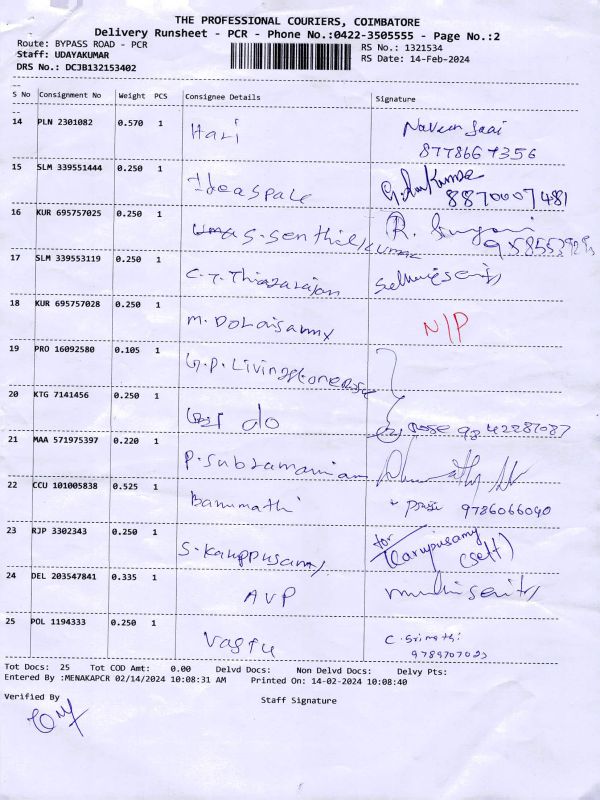 THE PROFESSIONAL COURIERS, COIMBATORE
Delivery Runsheet - PCR - Phone No.:0422-3505555 - Page No.:2
Route: BYPASS ROAD - PCR
RS No.: 1321534
Staff: UDAYAKUMAR
RS Date: 14-Feb-2024
DRS No.: DCJB132153402
S No Consignment No Weight PCS Consignee Details Signature
14 PLN 2301082 0.570 1 Hari Naveen Saai
8778667356
15 SLM 339551444 0.250 1 Ideaspace
8870007481
16 KUR 695757025 0.250 1 S. Senthilkumar R.
17 SLM 339553119 0.250 1 C.T. Thiagarajan
18 KUR 695757028 0.250 1 M. Doraisammy N/P
19 PRO 16092580 0.105 1 G.P. Livingstone
20 KTG 7141456 0.250 1 do
Rose 9842287087
21 MAA 571975397 0.220 1 P. Subramanian
22 CCU 101005838 0.525 1 Banumathi
9786066040
23 RJP 3302343 0.250 1 S. Karuppusamy for Karupusamy
(self)
24 DEL 203547841 0.335 1 AVP
25 POL 1194333 0.250 1 Vastu C. Srimathi
9789707023
Tot Docs: 25 Tot COD Amt: 0.00 Delvd Docs: Non Delvd Docs: Delvy Pts:
Entered By :MENAKAPCR 02/14/2024 10:08:31 AM Printed On: 14-02-2024 10:08:40
Verified By
Staff Signature